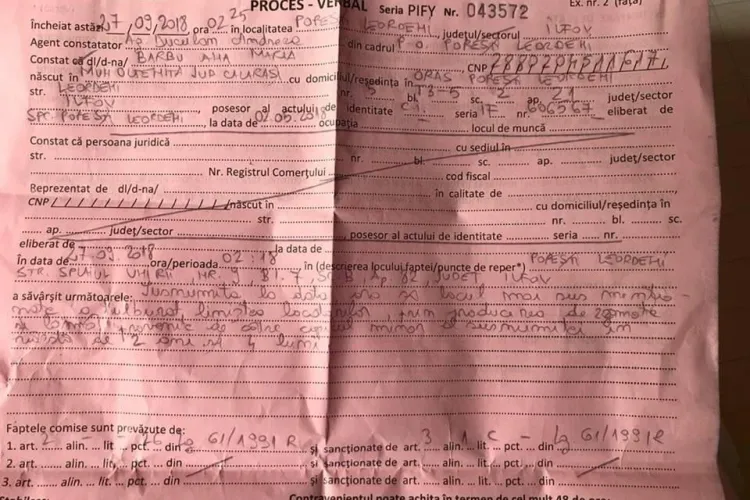 PROCES - VERBAL Seria PIFY Nr. 043572 Ex. nr. 2 (fața)
încheiat astăzi 27 / 09.2018, ora 02 25 în localitatea POPEȘTI LEORDENI, județul/sectorul ILFOV
Agent constatator din cadrul P.O. POPEȘTI LEORDENI
Constat că dl/d-na/ BARBU ANA MARIA, CNP
născut în JUD CĂLĂRAȘI cu domiciliul/reședința în ORAȘ POPEȘTI LEORDENI
str. LEORDENI nr. 5 bl. T3-5 sc. 2 ap. 21 județ/sector
ILFOV posesor al actului de identitate C.I. seria 17 nr. eliberat de
SPC POPEȘTI LEORDENI, la data de 02.05.2018 ocupația locul de muncă
Constat că persoana juridică cu sediul în
str. nr. bl. sc. ap. județ/sector
Nr. Registrul Comerțului cod fiscal
Reprezentat de dl/d-na/ în calitate de
CNP / / / / / / / / / / / / / născut în cu domiciliul/reședința în
str. nr. bl. sc.
ap. județ/sector, posesor al actului de identitate seria nr.
eliberat de la data de
În data de 27.09.2018 ora/perioada 02:18 în (descrierea locului faptei/puncte de reper*) POPEȘTI LEORDENI
STR. SPLAIUL UNIRII, NR. 9 Bl. 7, Sc. B, Ap. 82, JUDEȚ ILFOV
a săvârșit următoarele: Susnumita la data ora și locul mai sus mențio-
nate a tulburat liniștea locatarilor, prin producerea de zgomote
provenite de către copilul minor al susnumitei în
vârstă de 2 ani și 4 luni
Faptele comise sunt prevăzute de:
1. art. 2 alin. - lit. pct. - din Lg 61/1991 R și sancționate de art. 3 alin. 1 lit. c pct. - din Lg 61/1991 R
2. art. alin. lit. pct. din și sancționate de art. alin. lit. pct. din
3. art. alin. lit. pct. din și sancționate de art. alin. lit. pct. din
Contravenientul poate achita în termen de cel mult 48 de ore